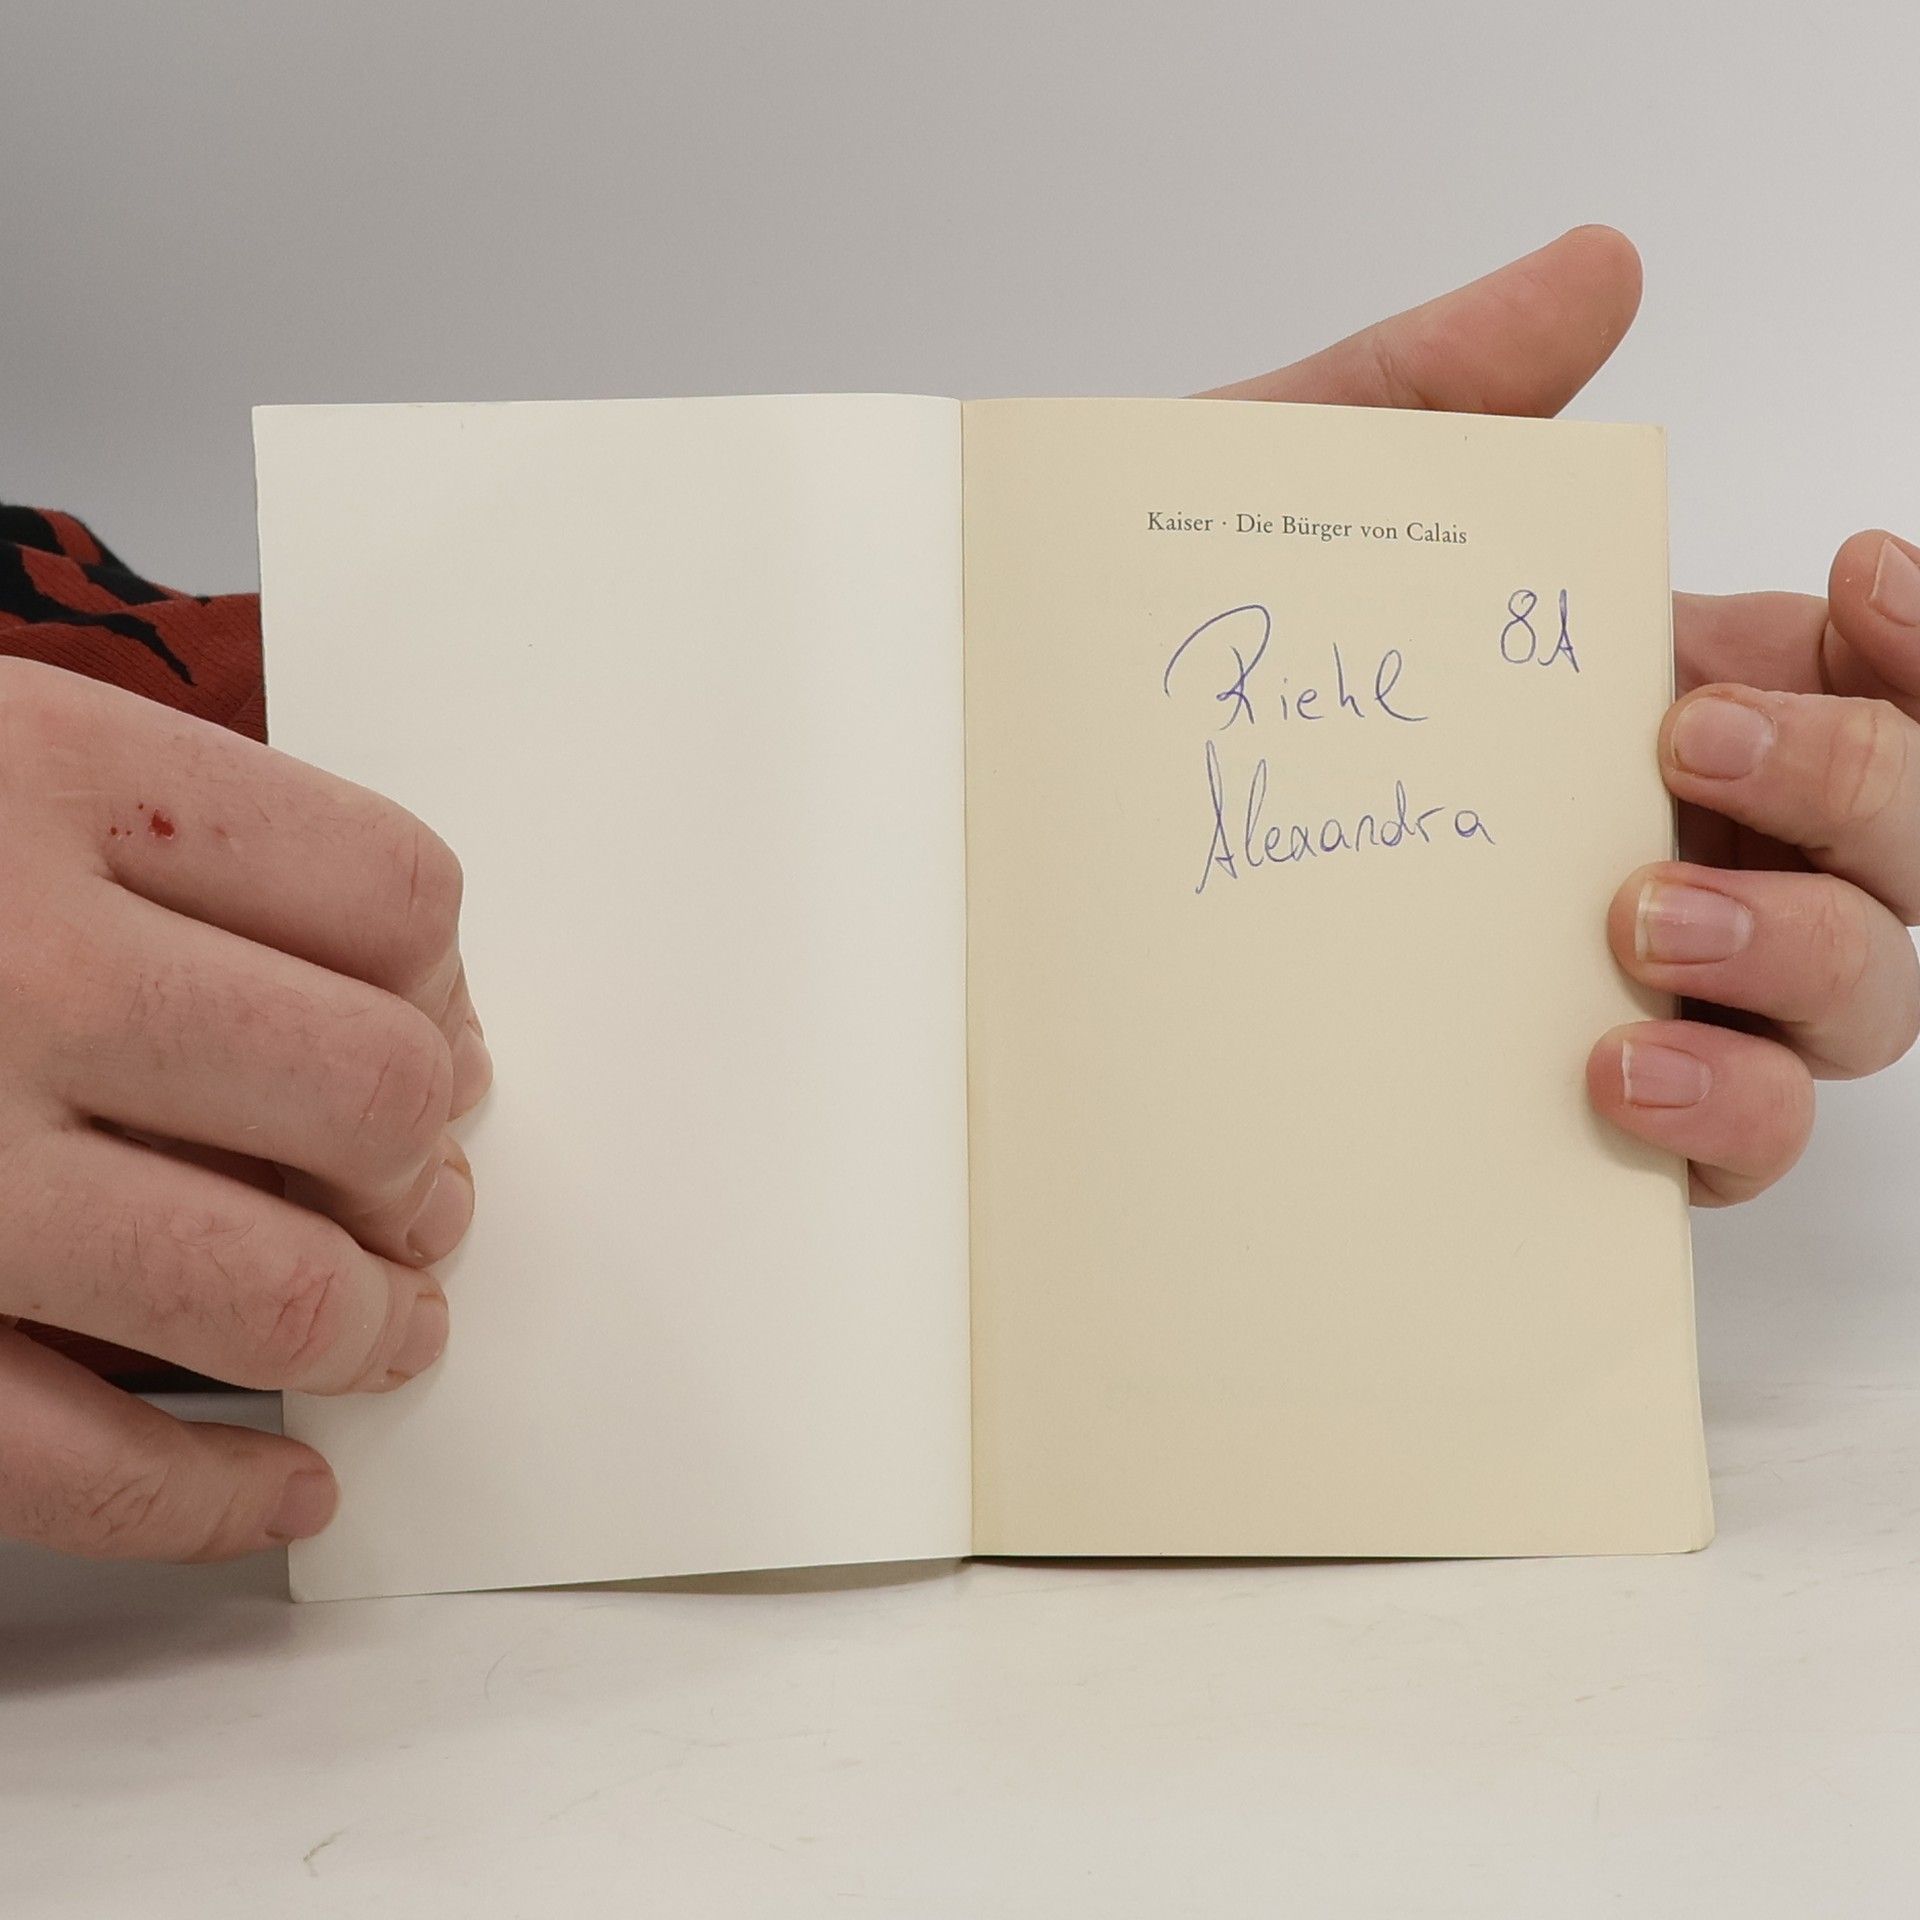 Kaiser · Die Bürger von Calais
Riehl 8A
Alexandra